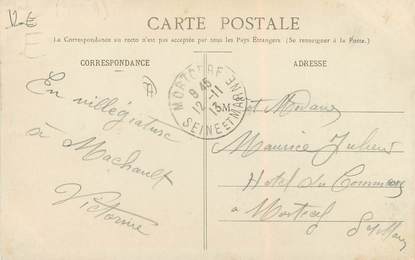 12.€
CARTE POSTALE
La Correspondance au recto n'est pas acceptée par tous les Pays Étrangers (Se renseigner à la Poste).
CORRESPONDANCE
ADRESSE
MORTCERF
9 45
12 -11
13
SEINE ET MARNE
En villégiature
à Machault
Victorine
M et Madame
Maurice Julien
Hotel du Commerce
à Mortcerf